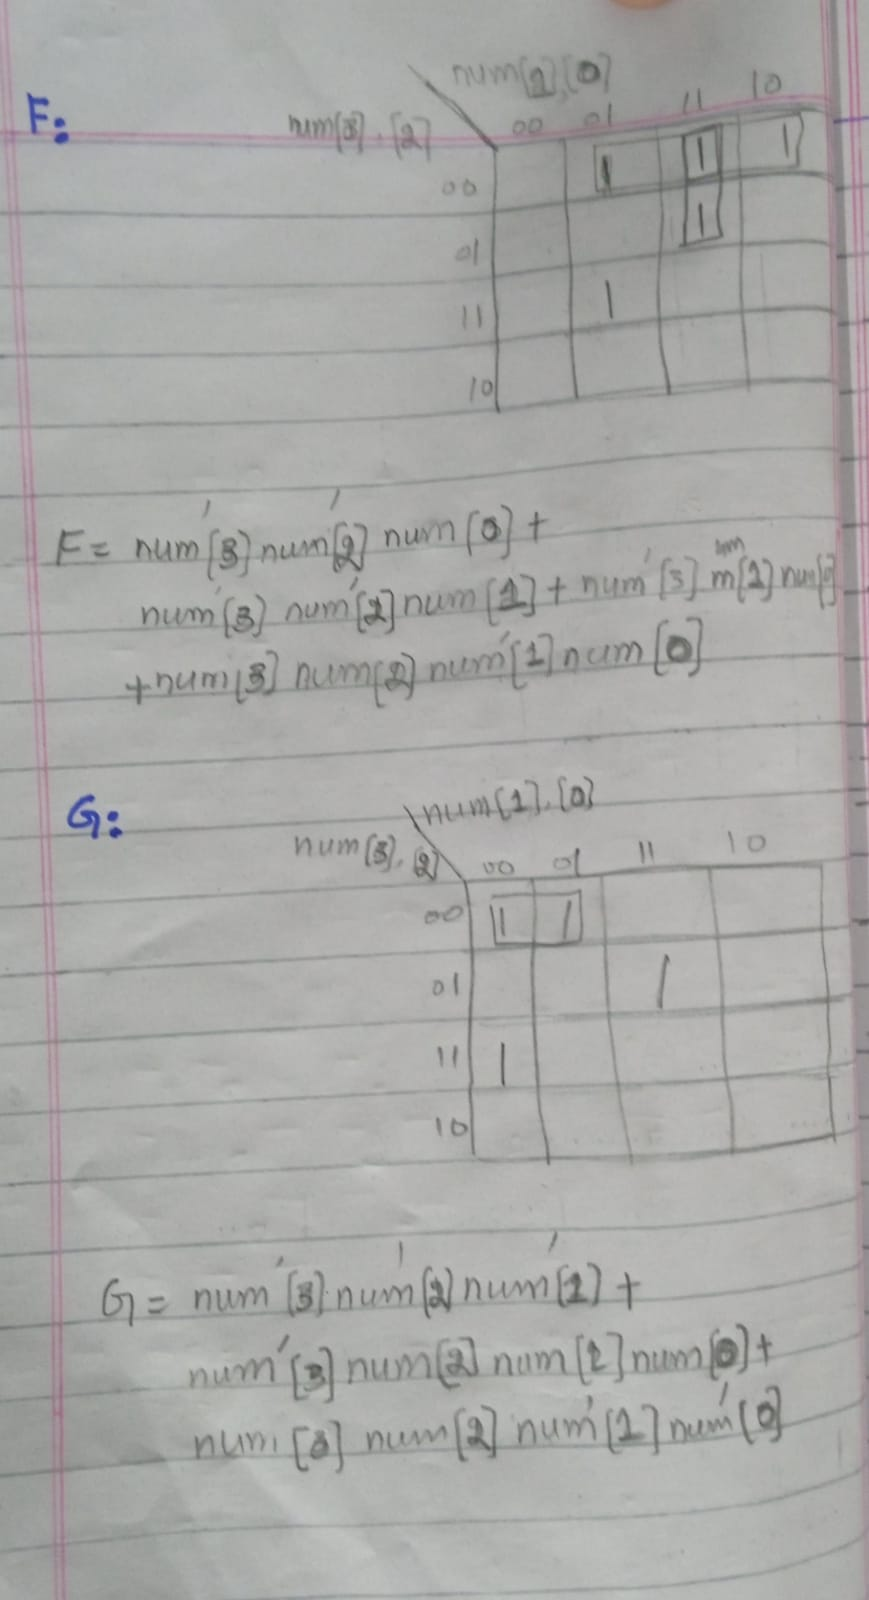 F:
num[1],[0]
num[3],[2]
00 01 11 10
00 1 1 1
01 1
11 1
10
F = num'[3] num'[2] num[0] +
num'[3] num'[2] num[1] + num'[3] m[1] num[0]
+ num[3] num[2] num'[1] num[0]
G:
num[1],[0]
num[3],[2]
00 01 11 10
00 1 1
01 1
11 1
10
G = num'[3] num'[2] num'[1] +
num'[3] num[2] num[1] num[0] +
num[3] num[2] num'[1] num'[0]